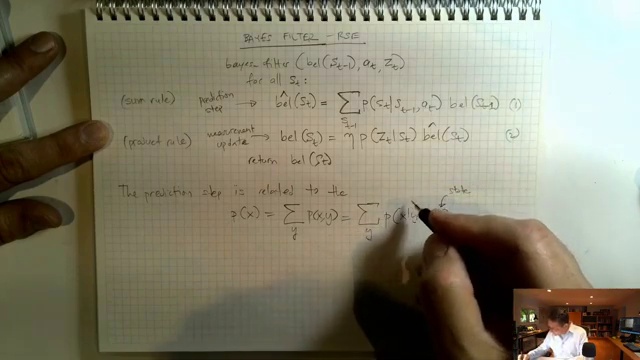 BAYES FILTER - RSE
bayesian filter (bel(St-1), at, Zt)
for all St:
(sum rule) prediction step → bel̂(St) = ∑St-1 p(St|St-1, at) bel(St-1) (1)
(product rule) measurement update → bel(St) = η p(Zt|St) bel̂(St) (2)
return bel(St)
The prediction step is related to the
state
p(x) = ∑y p(x,y) = ∑y p(x|y